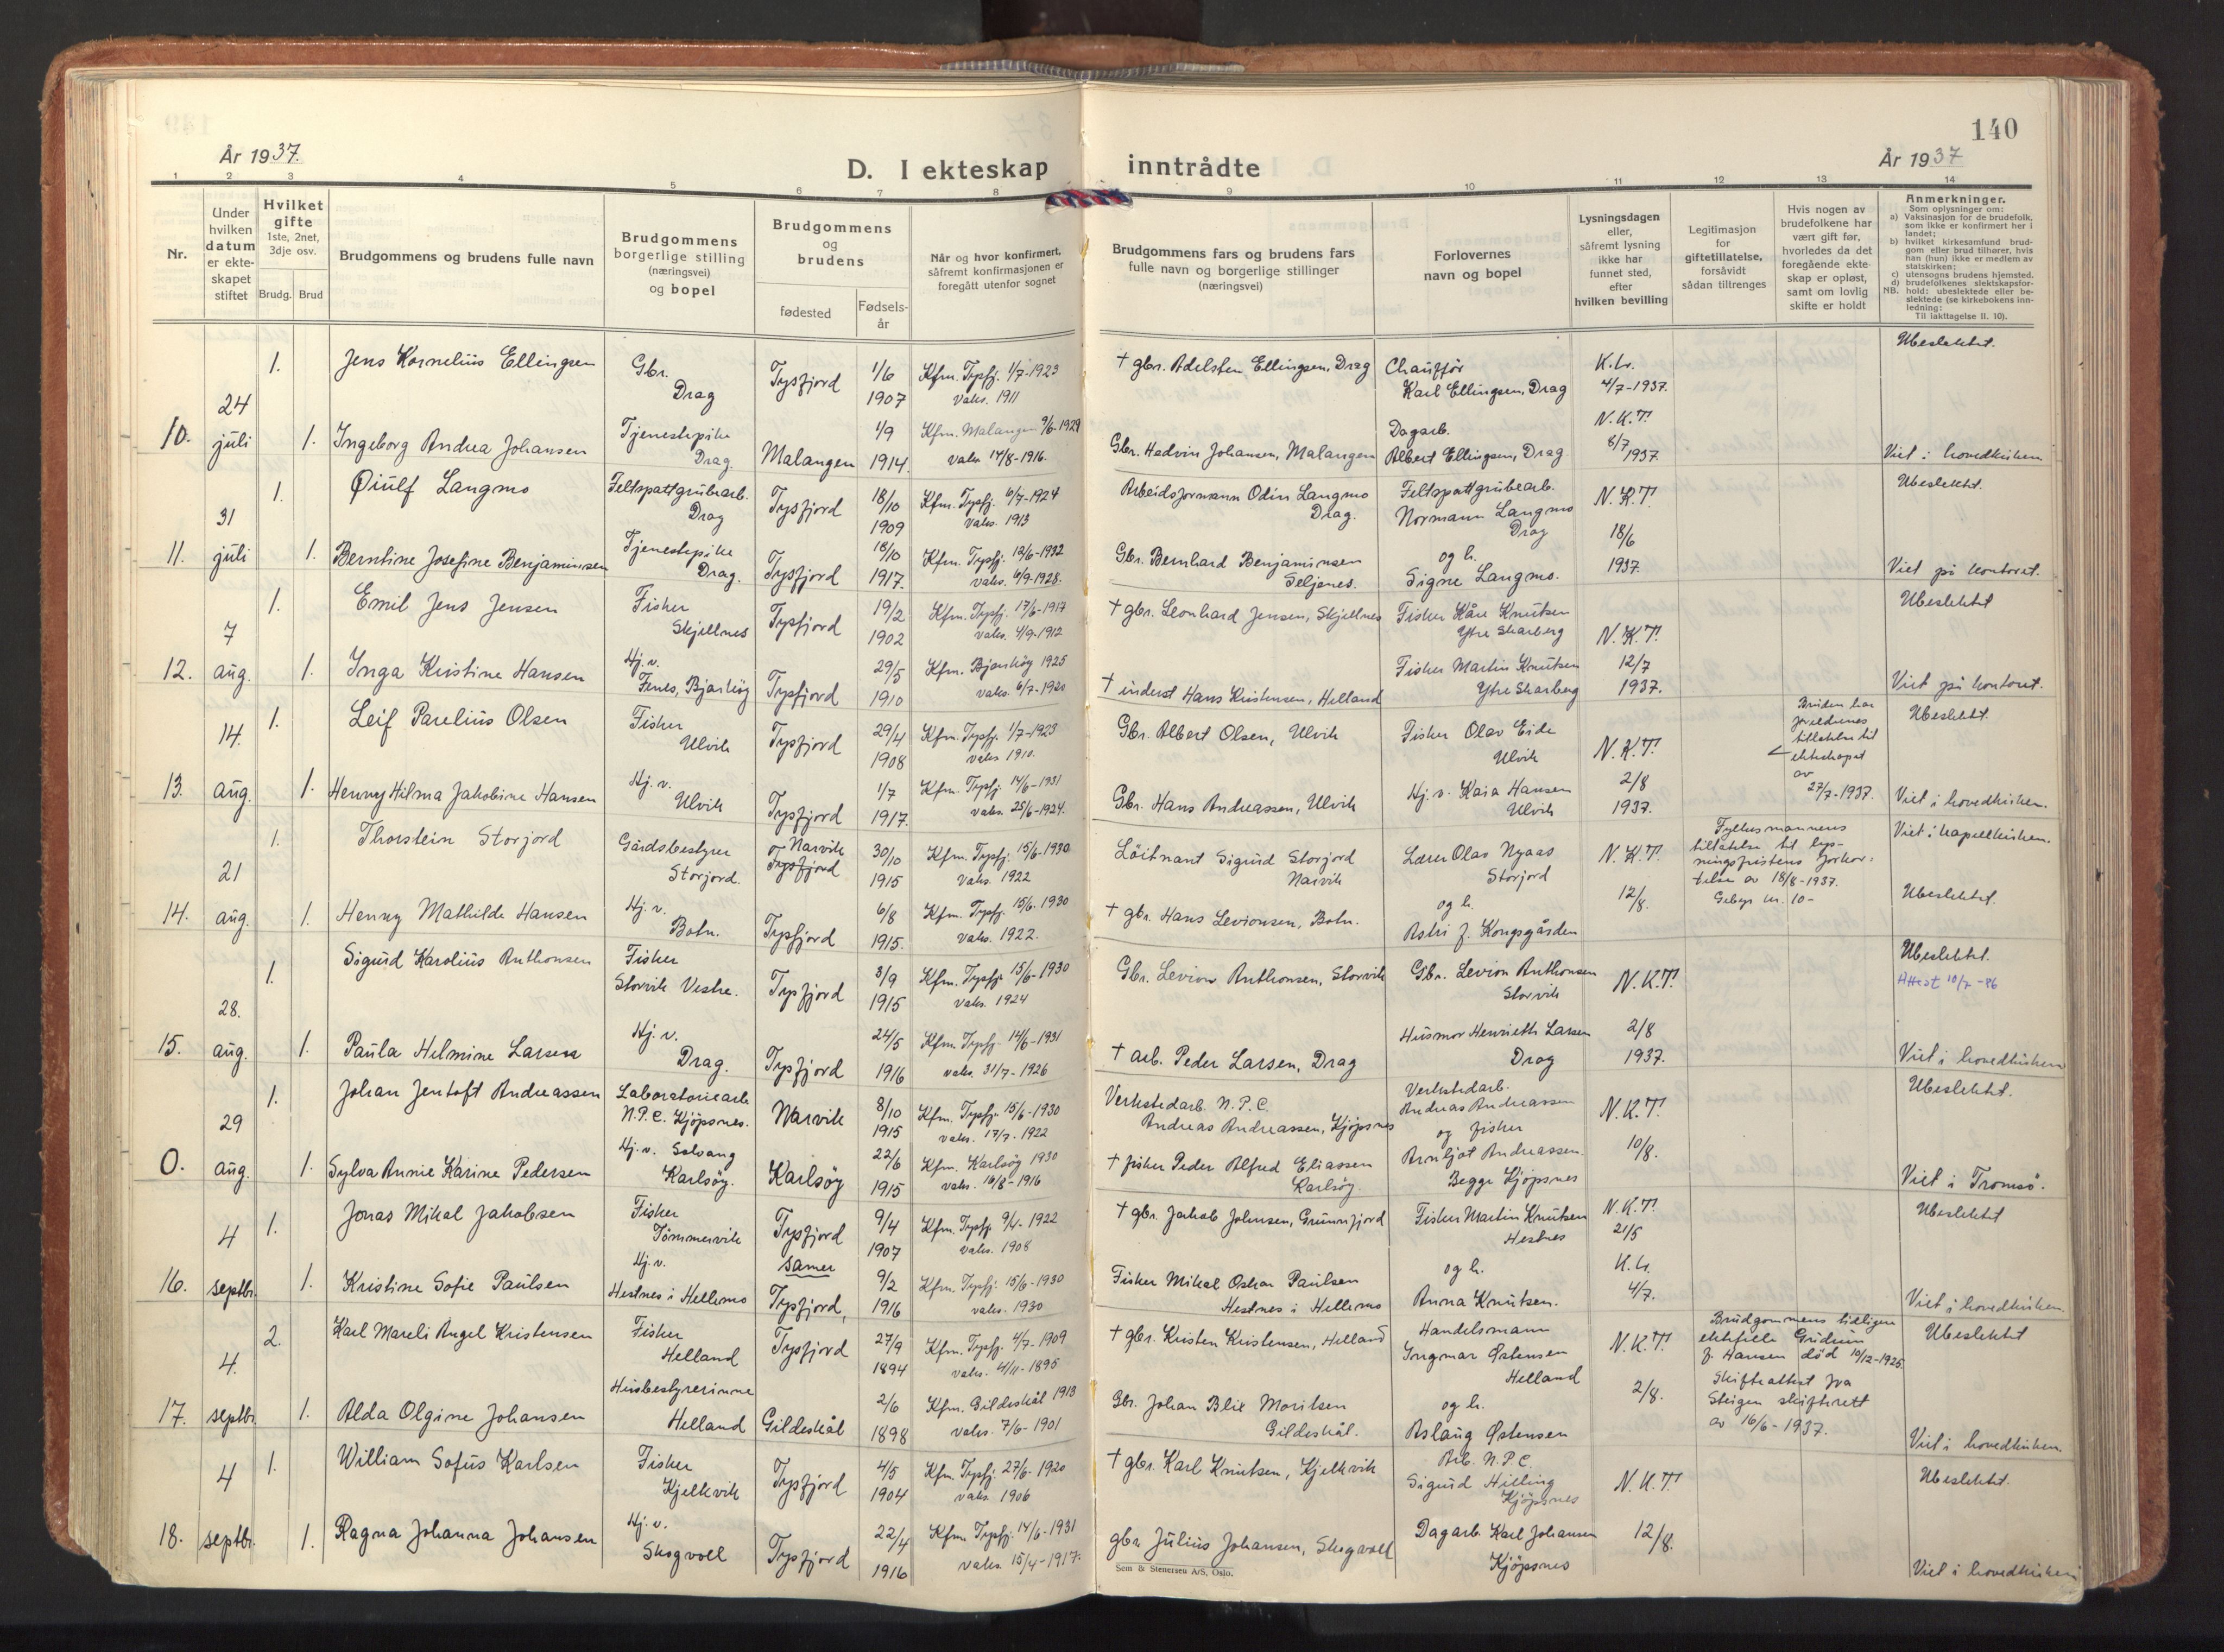 140
År 1937.
D. I ekteskap inntrådte
År 1937
1 2 3 4 5 6 7 8 9 10 11 12 13 14
Nr.
Under hvilken datum er ekteskapet stiftet
Hvilket gifte
1ste, 2net, 3dje osv.
Brudg. Brud
Brudgommens og brudens fulle navn
Brudgommens borgerlige stilling (næringsvei) og bopel
Brudgommens og brudens
fødested
Fødselsår
Når og hvor konfirmert, såfremt konfirmasjonen er foregått utenfor sognet
Brudgommens fars og brudens fars fulle navn og borgerlige stillinger (næringsvei)
Forlovernes navn og bopel
Lysningsdagen eller, såfremt lysning ikke har funnet sted, efter hvilken bevilling
Legitimasjon for giftetillatelse, forsåvidt sådan tiltrenges
Hvis nogen av brudefolkene har vært gift før, hvorledes da det foregående ekteskap er opløst, samt om lovlig skifte er holdt
Anmerkninger.
Som oplysninger om:
a) Vaksinasjon for de brudefolk, som ikke er konfirmert her i landet;
b) hvilket kirkesamfund brudgom eller brud tilhører, hvis han (hun) ikke er medlem av statskirken;
c) utensogns brudens hjemsted.
d) brudefolkenes slektskapsforhold: ubeslektede eller beslektede (se kirkebokens innledning:
NB. Til iakttagelse II. 10).
10. 24 juli
1. Jens Kornelius Ellingsen Gbr. Drag Tysfjord 1/6 1907 Kfm. Tysfj. 1/7-1923 vaks. 1911 † gbr. Adelsten Ellingsen, Drag Chauffør Karl Ellingsen, Drag K.L. 4/7-1937. Ubeslektet.
1. Ingeborg Andrea Johansen Tjenestepike Drag. Malangen 1/9 1914. Kfm. Malangen 9/6-1929 vaks 14/8-1916. Gbr. Hedvin Johansen, Malangen Dagarb. Albert Ellingsen, Drag N.K.T. 8/7 1937. Viet i hovedkirken
11. 31 juli
1. Øiulf Langmo Feltspattgrubearb. Drag Tysfjord 18/10 1909 Kfm. Tysfj. 6/7-1924 vaks. 1913 Arbeidsformann Odin Langmo Drag. Feltspattgrubearb. Normann Langmo Drag N.K.T. 18/6 1937. Ubeslektet.
1. Berntine Josefine Benjaminsen Tjenestepike Drag. Tysfjord 18/10 1917. Kfm. Tysfj. 12/6-1932 vaks. 6/9-1928. Gbr. Bernhard Benjaminsen Seljenes. og h. Signe Langmo. Viet på kontoret.
12. 7 aug.
1. Emil Jens Jensen Fisker Skjellnes Tysfjord 19/2 1902 Kfm. Tysfj. 17/6-1917 vaks. 4/9-1912 † gbr. Leonhard Jensen, Skjellnes Fisker Kåre Knutsen Ytre Skarberg N.K.T. 12/7 1937. Ubeslektet
1. Inga Kristine Hansen Hj.v. Fenes, Bjarkøy Tysfjord 29/5 1910 Kfm. Bjarkøy 1925 vaks. 6/7-1920 † inderst Hans Kristensen, Helland Fisker Martin Knutsen Ytre Skarberg Viet på kontoret.
13. 14. aug.
1. Leif Parelius Olsen Fisker Ulvik Tysfjord 29/4 1908 Kfm. Tysfj. 1/7-1923 vaks 1910. Gbr. Albert Olsen, Ulvik Fisker Olav Eide Ulvik N.K.T. 2/8 1937. Bruden har foreldrenes tillatelse til ekteskapet av 27/7-1937. Ubeslektet.
1. Henny Hilma Jakobine Hansen Hj.v. Ulvik Tysfjord 1/7 1917. Kfm. Tysfj. 14/6-1931 vaks. 25/6-1924. Gbr. Hans Andreassen, Ulvik Hj.v. Kaia Hansen Ulvik Viet i hovedkirken.
14. 21 aug.
1. Thorstein Storjord Gårdsbestyrer Storjord. Narvik Tysfjord 30/10 1915 Kfm. Tysfj. 15/6-1930 vaks. 1922 Löitnant Sigurd Storjord Narvik Lærer Olav Nyaas Storjord N.K.T. 12/8. Fylkesmannens tillatelse til lysningsfristens forkortelse av 18/8-1937. Gebyr kr. 10- Viet i kapellkirken.
1. Henny Mathilde Hansen Hj.v. Botn. Tysfjord 6/8 1915. Kfm. Tysfj. 15/6-1930 vaks. 1922. † gbr. Hans Levionsen, Botn. og h. Astri f. Kongsgården Ubeslektet.
15. 28. aug.
1. Sigurd Karolius Anthonsen Fisker Storvik Vestre. Tysfjord 3/9 1915 Kfm. Tysfj. 15/6-1930 vaks. 1924 Gbr. Levion Anthonsen, Storvik Gbr. Levion Anthonsen Storvik N.K.T. 2/8 1937. Ubeslektet. Attest 10/7-86
1. Paula Helmine Larsen Hj.v. Drag. Tysfjord 24/5 1916 Kfm. Tysfj. 14/6-1931 vaks. 31/7-1926 † arb. Peder Larsen, Drag Husmor Henrieth Larsen Drag Viet i hovedkirken
0. 29 aug.
1. Johan Jentoft Andreassen Laboratoriearb. N.P.C. Kjöpsnes. Narvik 8/10 1915 Kfm. Tysfj. 15/6-1930 vaks. 17/7-1922 Verkstedarb. N.P.C. Andreas Andreassen, Kjöpsnes Verkstedarb. Andreas Andreassen og fisker N.K.T. 10/8. Ubeslektet.
1. Sylva Annie Karine Pedersen Hj.v. Solvang Karlsöy. Karlsöy 22/6 1915 Kfm. Karlsöy 1930 vaks. 16/8-1916 † fisker Peder Alfred Eliassen Karlsöy. Arnljot Andreassen. Begge Kjöpsnes Viet i Tromsö.
16. 4 septbr.
1. Jonas Mikal Jakobsen Fisker Tömmervik Tysfjord 9/4 1907 Kfm. Tysfj. 9/4-1922 vaks. 1908 † gbr. Jakob Johnsen, Grunnfjord Fisker Martin Knutsen Hestnes N.K.T. 21/5 Ubeslektet
samer
1. Kristine Sofie Paulsen Hj.v. Hestnes i Hellemo Tysfjord, 9/2 1916 Kfm. Tysfj. 15/6-1930 vaks. 1930 Fisker Mikal Oskar Paulsen Hestnes i Hellemo og h. Anna Knutsen. K.L. 4/7. Viet i hovedkirken.
17. 4. septbr.
2. Karl Mareli Angel Kristensen Fisker Helland Tysfjord 27/9 1894 Kfm. Tysfj. 4/7-1909 vaks. 4/11-1895 † gbr. Kristen Kristensen, Helland Handelsmann Ingmar Østensen Helland N.K.T. 2/8. Brudgommens tidligere ektefelle f. Hansen död 10/12-1925. Skifteattest fra Steigen skifterett av 16/6-1937. Ubeslektet
1. Alda Olgine Johansen Husbestyrerinne Helland Gildeskål 2/6 1898 Kfm. Gildeskål 1913 vaks. 7/6-1901 Gbr. Johan Blix Moritsen Gildeskål. og h. Aslaug Østensen Viet i hovedkirken.
18. 4 septbr.
1. William Sofus Karlsen Fisker Kjelkvik Tysfjord 4/5 1904 Kfm. Tysfj. 27/6-1920 vaks. 1906 † gbr. Karl Knutsen, Kjelkvik Arb. N.P.C. Sigurd Hilling Kjöpsnes N.K.T. 12/8. Ubeslektet.
1. Ragna Johanna Johansen Hj.v. Skogvoll Tysfjord 22/4 1916 Kfm. Tysfj. 14/6-1931 vaks. 15/4-1917. gbr. Julius Johansen, Skogvoll Dagarb. Karl Johansen Kjöpsnes Viet i hovedkirken
Sem & Stenersen A/S, Oslo.